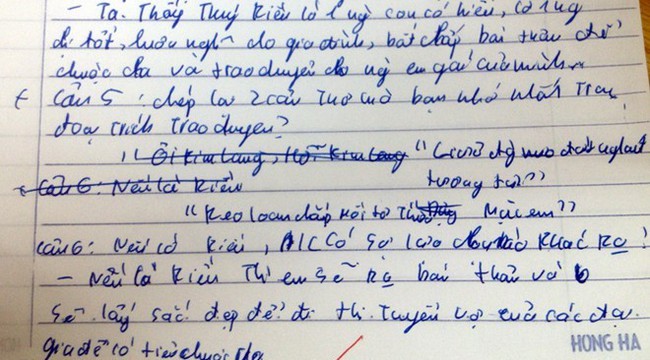 - Ta. Thấy Thuý Kiều là 1 ng con có hiếu, có lòng
tốt, luôn nghĩ cho gia đình, bất chấp bản thân để
chuộc cha và trao duyên cho ng em gái của mình.
Câu 5 : chép lại 2 câu Thơ mà bạn nhớ nhất Trong
đoạn trích Trao duyên?
"Ôi Kim Lang, Hỡi Kim Lang "Giữa đg
Câu 6: Nếu là Kiều tương tư"
"Keo loan chắp mối tơ Thừa Mặc em"
Câu 6: Nếu là Kiều, A/C có sự lựa chọn nào Khác Ko?
- Nếu là Kiều Thì em sẽ bán thân và
sẽ lấy sắc đẹp để đi thi Tuyển vợ của các đại
gia để có tiền chuộc cha
HONG HA